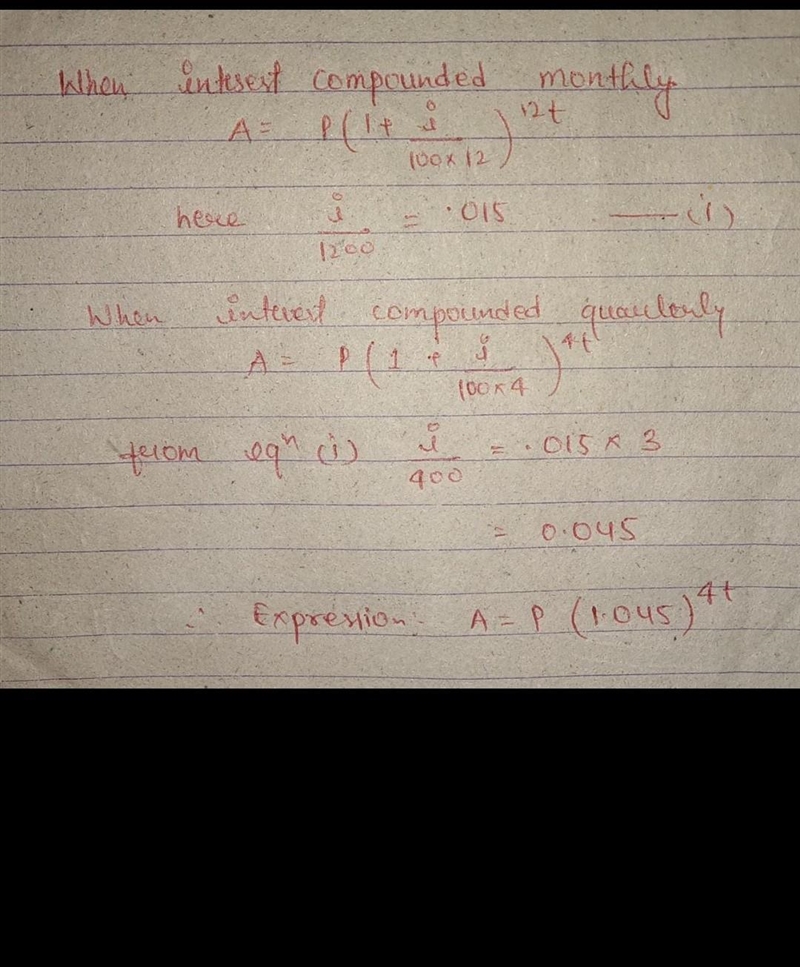 When interest compounded monthly
A = P(1 + i/100×12)^12t
here i/1200 = .015 —— (i)
When interest compounded quarterly
A = P(1 + i/100×4)^4t
from eqⁿ (i) i/400 = .015 × 3
= 0.045
∴ Expression:- A = P (1.045)^4t